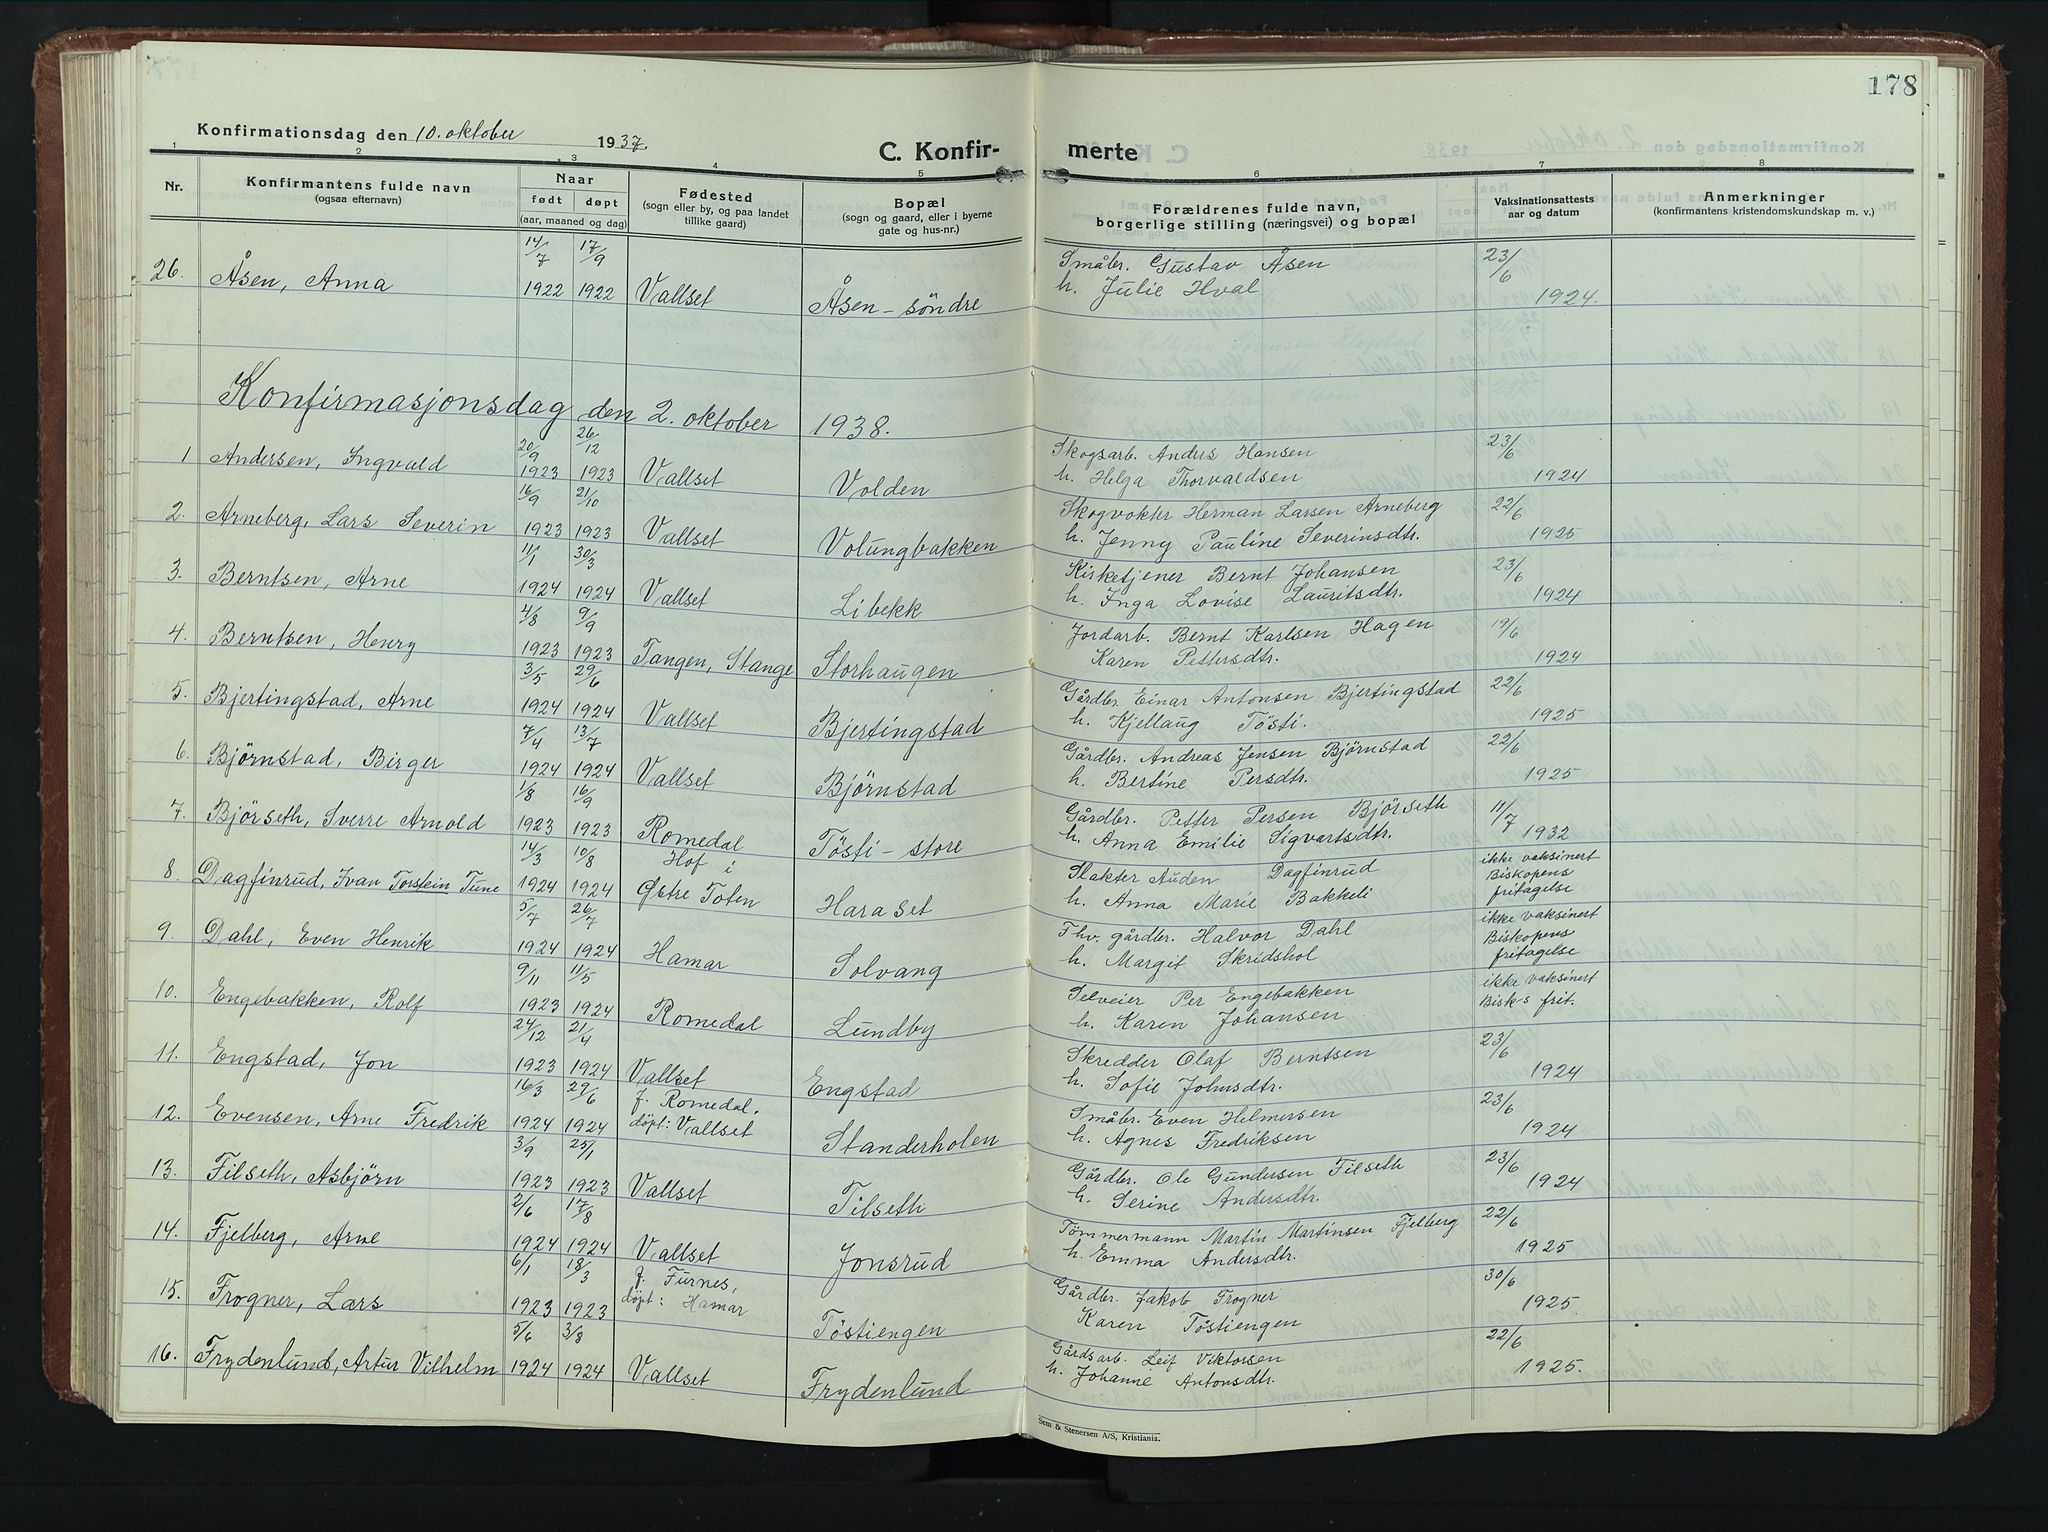 178
Konfirmationsdag den 10. oktober 1937.
C. Konfir- merte
1 2 3 4 5 6 7 8
Nr.
Konfirmantens fulde navn
(ogsaa efternavn)
Naar
født døpt
(aar, maaned og dag)
Fødested
(sogn eller by, og paa landet
tillike gaard)
Bopæl
(sogn og gaard, eller i byerne
gate og hus-nr.)
Forældrenes fulde navn,
borgerlige stilling (næringsvei) og bopæl
Vaksinationsattests
aar og datum
Anmerkninger
(konfirmantens kristendomskundskap m. v.)
14/7 17/9 Småbr. Gustav Åsen 23/6
26. Åsen, Anna 1922 1922 Vallset Åsen – söndre h. Julie Hval 1924.
Konfirmasjonsdag den 2. oktober 1938.
20/9 26/12 Skogsarb. Anders Hansen 23/6
1 Andersen, Ingvald 1923 1923 Vallset Volden h. Helga Thorvaldsen 1924
16/9 21/10 Skogvokter Herman Larsen Arneberg 22/6
2. Arneberg, Lars Severin 1923 1923 Vallset Volungbakken h. Jenny Pauline Severinsdtr. 1925
11/1 30/3 Kirketjener Bernt Johansen 23/6
3. Berntsen, Arne 1924 1924 Vallset Libekk h. Inga Lovise Lauritsdtr. 1924
4/8 9/9 Jordarb. Bernt Karlsen Hagen 19/6
4. Berntsen, Henry 1923 1923 Tangen, Stange Storhaugen Karen Pettersdtr. 1924
3/5 29/6 Gårdbr. Einar Antonsen Bjertingstad 22/6
5. Bjertingstad, Arne 1924 1924 Vallset Bjertingstad h. Kjellaug Tösti. 1925
7/4 13/7 Gårdbr. Andreas Jensen Bjørnstad 22/6
6. Bjørnstad, Birger 1924 1924 Vallset Bjørnstad h. Bertine Persdtr. 1925
1/8 16/9 Gårdbr. Petter Persen Bjørseth 11/7
7. Bjørseth, Sverre Arnold 1923 1923 Romedal Tösti – store h. Anna Emilie Sigvartsdtr. 1932
14/3 10/8 Hof i Slakter Auden Dagfinrud ikke vaksinert
8. Dagfinrud, Ivan Torstein Tune 1924 1924 Østre Toten Haraset h. Anna Marie Bakkeli Biskopens
fritagelse
5/7 26/7 Fhv. gårdbr. Halvor Dahl ikke vaksinert
9. Dahl, Even Henrik 1924 1924 Hamar Solvang h. Margit Skridshol Biskopens
fritagelse
9/11 11/5 Selveier Per Engebakken ikke vaksinert
10. Engebakken, Rolf 1923 1924 Romedal Lundby h. Karen Johansen Bisks frit.
24/12 21/4 Skredder Olaf Berntsen 23/6
11. Engstad, Jon 1923 1924 Vallset Engstad h. Sofie Johnsdtr. 1924
16/3 29/6 f. Romedal. Småbr. Even Helmersen 23/6
12. Evensen, Arne Fredrik 1924 1924 døpt: Vallset Standerholen h. Agnes Fredriksen 1924
3/9 25/1 Gårdbr. Ole Gundersen Filseth 23/6
13. Filseth, Asbjörn 1923 1923 Vallset Filseth h. Serine Andersdtr. 1924
2/6 17/8 Tömmermann Martin Martinsen Fjelberg 22/6
14. Fjelberg, Arne 1924 1924 Vallset Jonsrud h. Emma Andersdtr. 1925
6/1 18/3 f. Furnes, Gårdbr. Jakob Frogner 30/6
15. Frogner, Lars 1923 1923 døpt: Hamar Töstiengen Karen Töstiengen 1925.
5/6 3/8 Gårdsarb. Leif Viktorsen 22/6
16. Frydenlund, Artur Vilhelm 1924 1924 Vallset Frydenlund h. Johanne Antonsdtr. 1925.
Sem & Stenersen A/S, Kristiania.